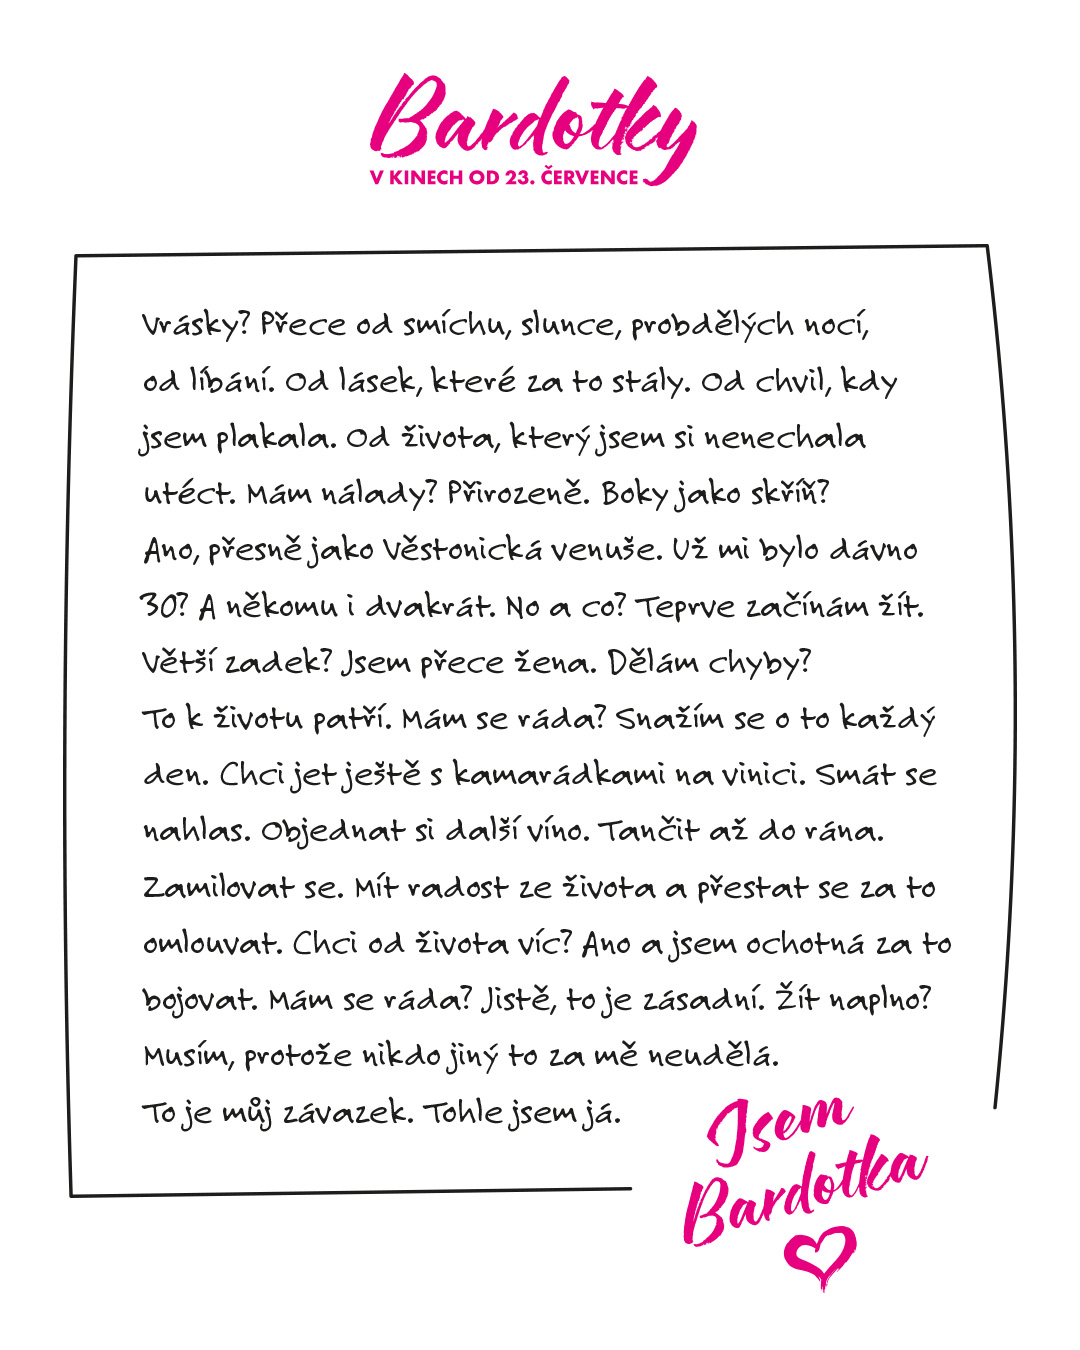 Bardotky
V KINECH OD 23. ČERVENCE
Vrásky? Přece od smíchu, slunce, probdělých nocí,
od líbání. Od lásek, které za to stály. Od chvil, kdy
jsem plakala. Od života, který jsem si nenechala
utéct. Mám nálady? Přirozeně. Boky jako skříň?
Ano, přesně jako Věstonická venuše. Už mi bylo dávno
30? A někomu i dvakrát. No a co? Teprve začínám žít.
Větší zadek? Jsem přece žena. Dělám chyby?
To k životu patří. Mám se ráda? Snažím se o to každý
den. Chci jet ještě s kamarádkami na vinici. Smát se
nahlas. Objednat si další víno. Tančit až do rána.
Zamilovat se. Mít radost ze života a přestat se za to
omlouvat. Chci od života víc? Ano a jsem ochotná za to
bojovat. Mám se ráda? Jistě, to je zásadní. Žít naplno?
Musím, protože nikdo jiný to za mě neudělá.
To je můj závazek. Tohle jsem já.
Jsem
Bardotka